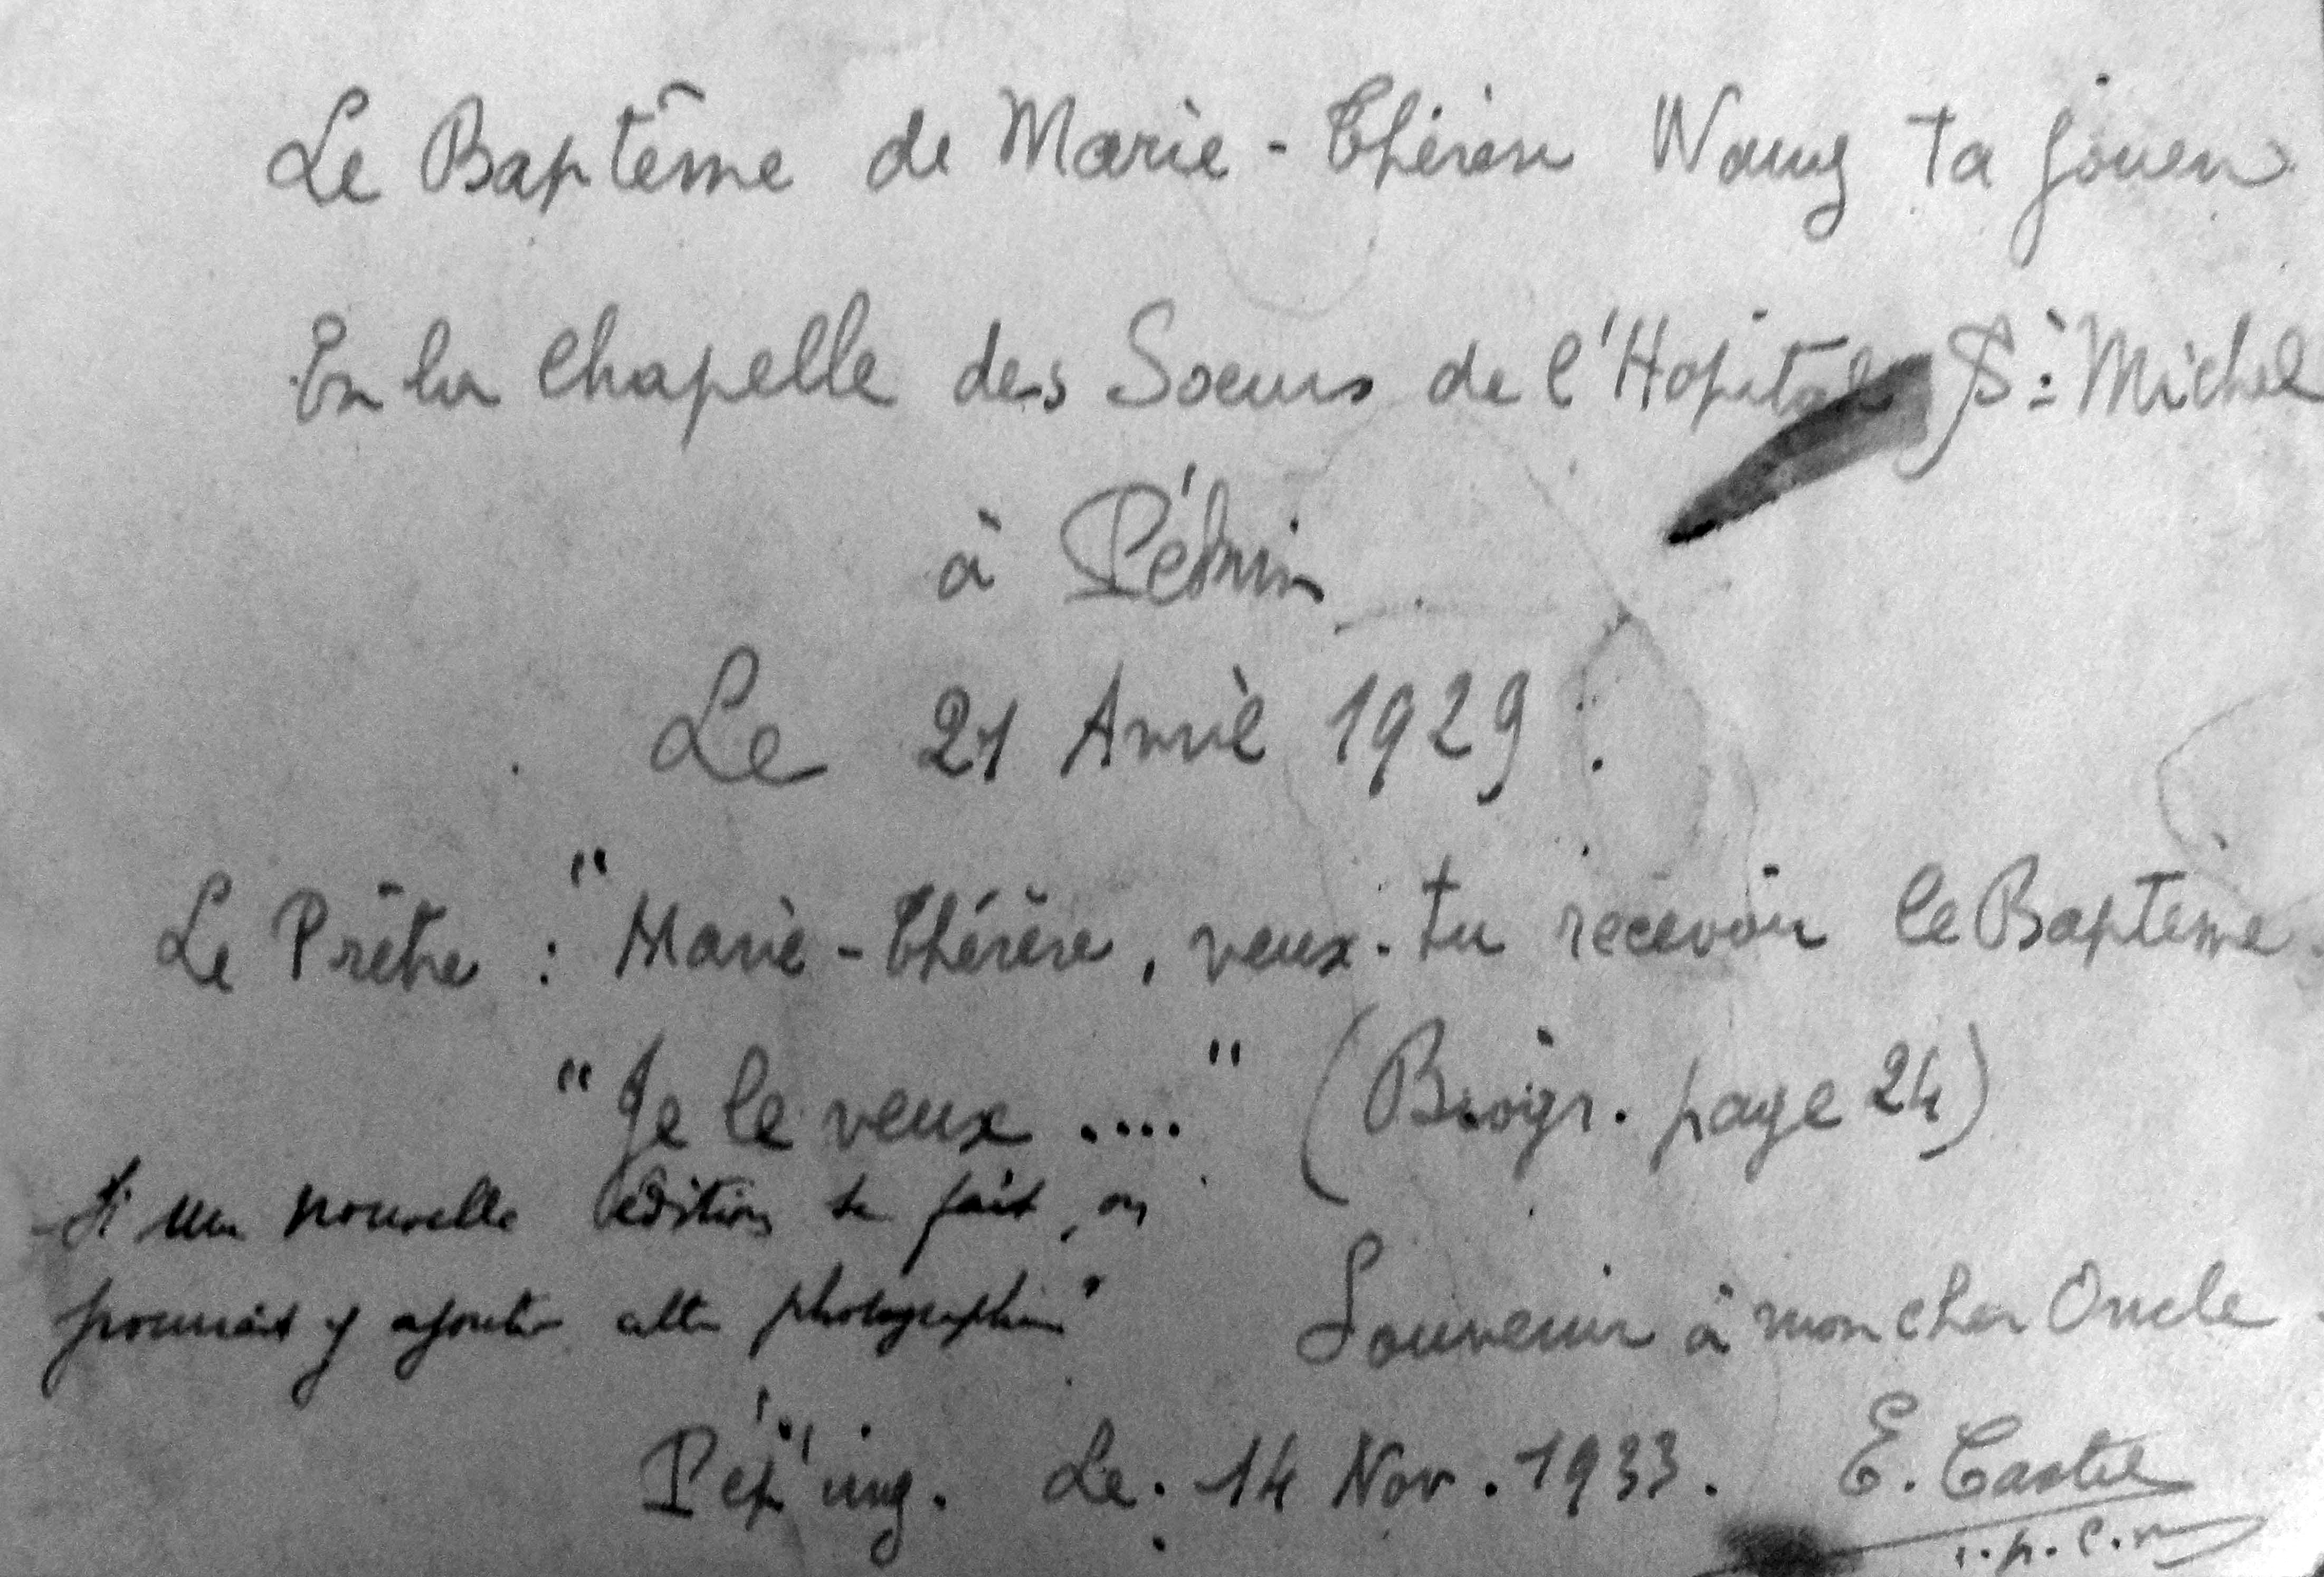 Le Baptême de Marie-Thérèse Wang ta jouen
En la Chapelle des Soeurs de l'Hopital St Michel
à Pékin
Le 21 Avril 1929.
Le Prêtre : "Marie-Thérèse, veux-tu recevoir le Baptême
"Je le veux ...." (Biogr. page 24)
Si une nouvelle édition se fait, on
pourrait y ajouter cette photographie"
Souvenir à mon cher Oncle
Pép'ing. Le. 14 Nov. 1933. E. Castel